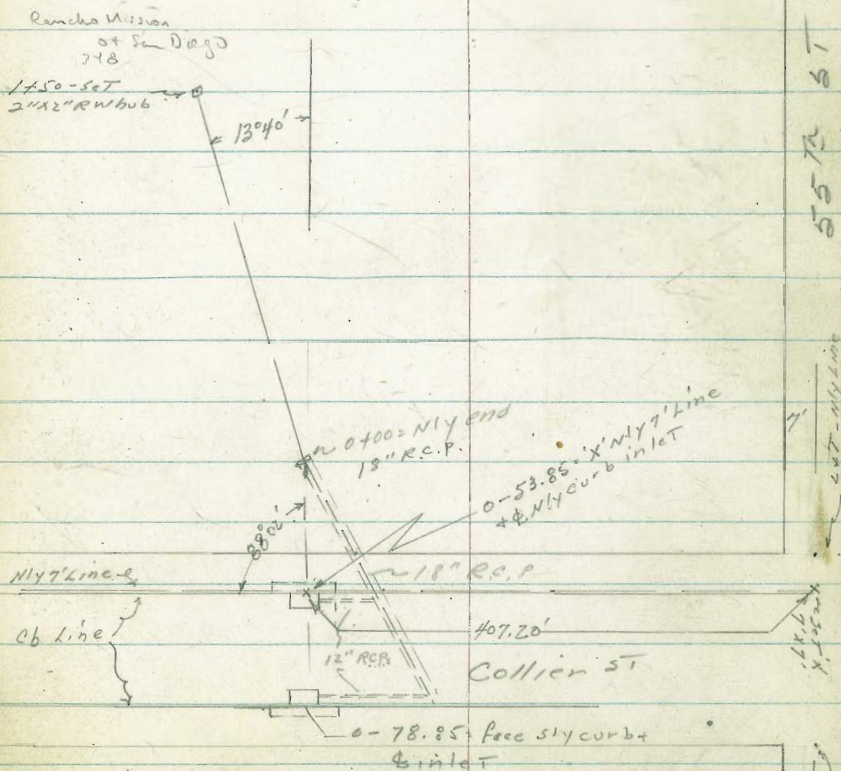 Rancho Mission
of San Diego
348
1+50-Set
2"x2" RW hub
13°40'
55 TH ST
0+00 = Nly end
18" R.C.P.
0-53.85 = 'X' Nly 7' Line
+ ℄ Nly curb inlet
7'
Int - Nly Line
88°02'
Nly 7' Line
18" R.C.P
Cb Line
407.20'
12" RCPs
Collier ST
7'x7'
0-78.85 = face sly curb +
℄ inlet